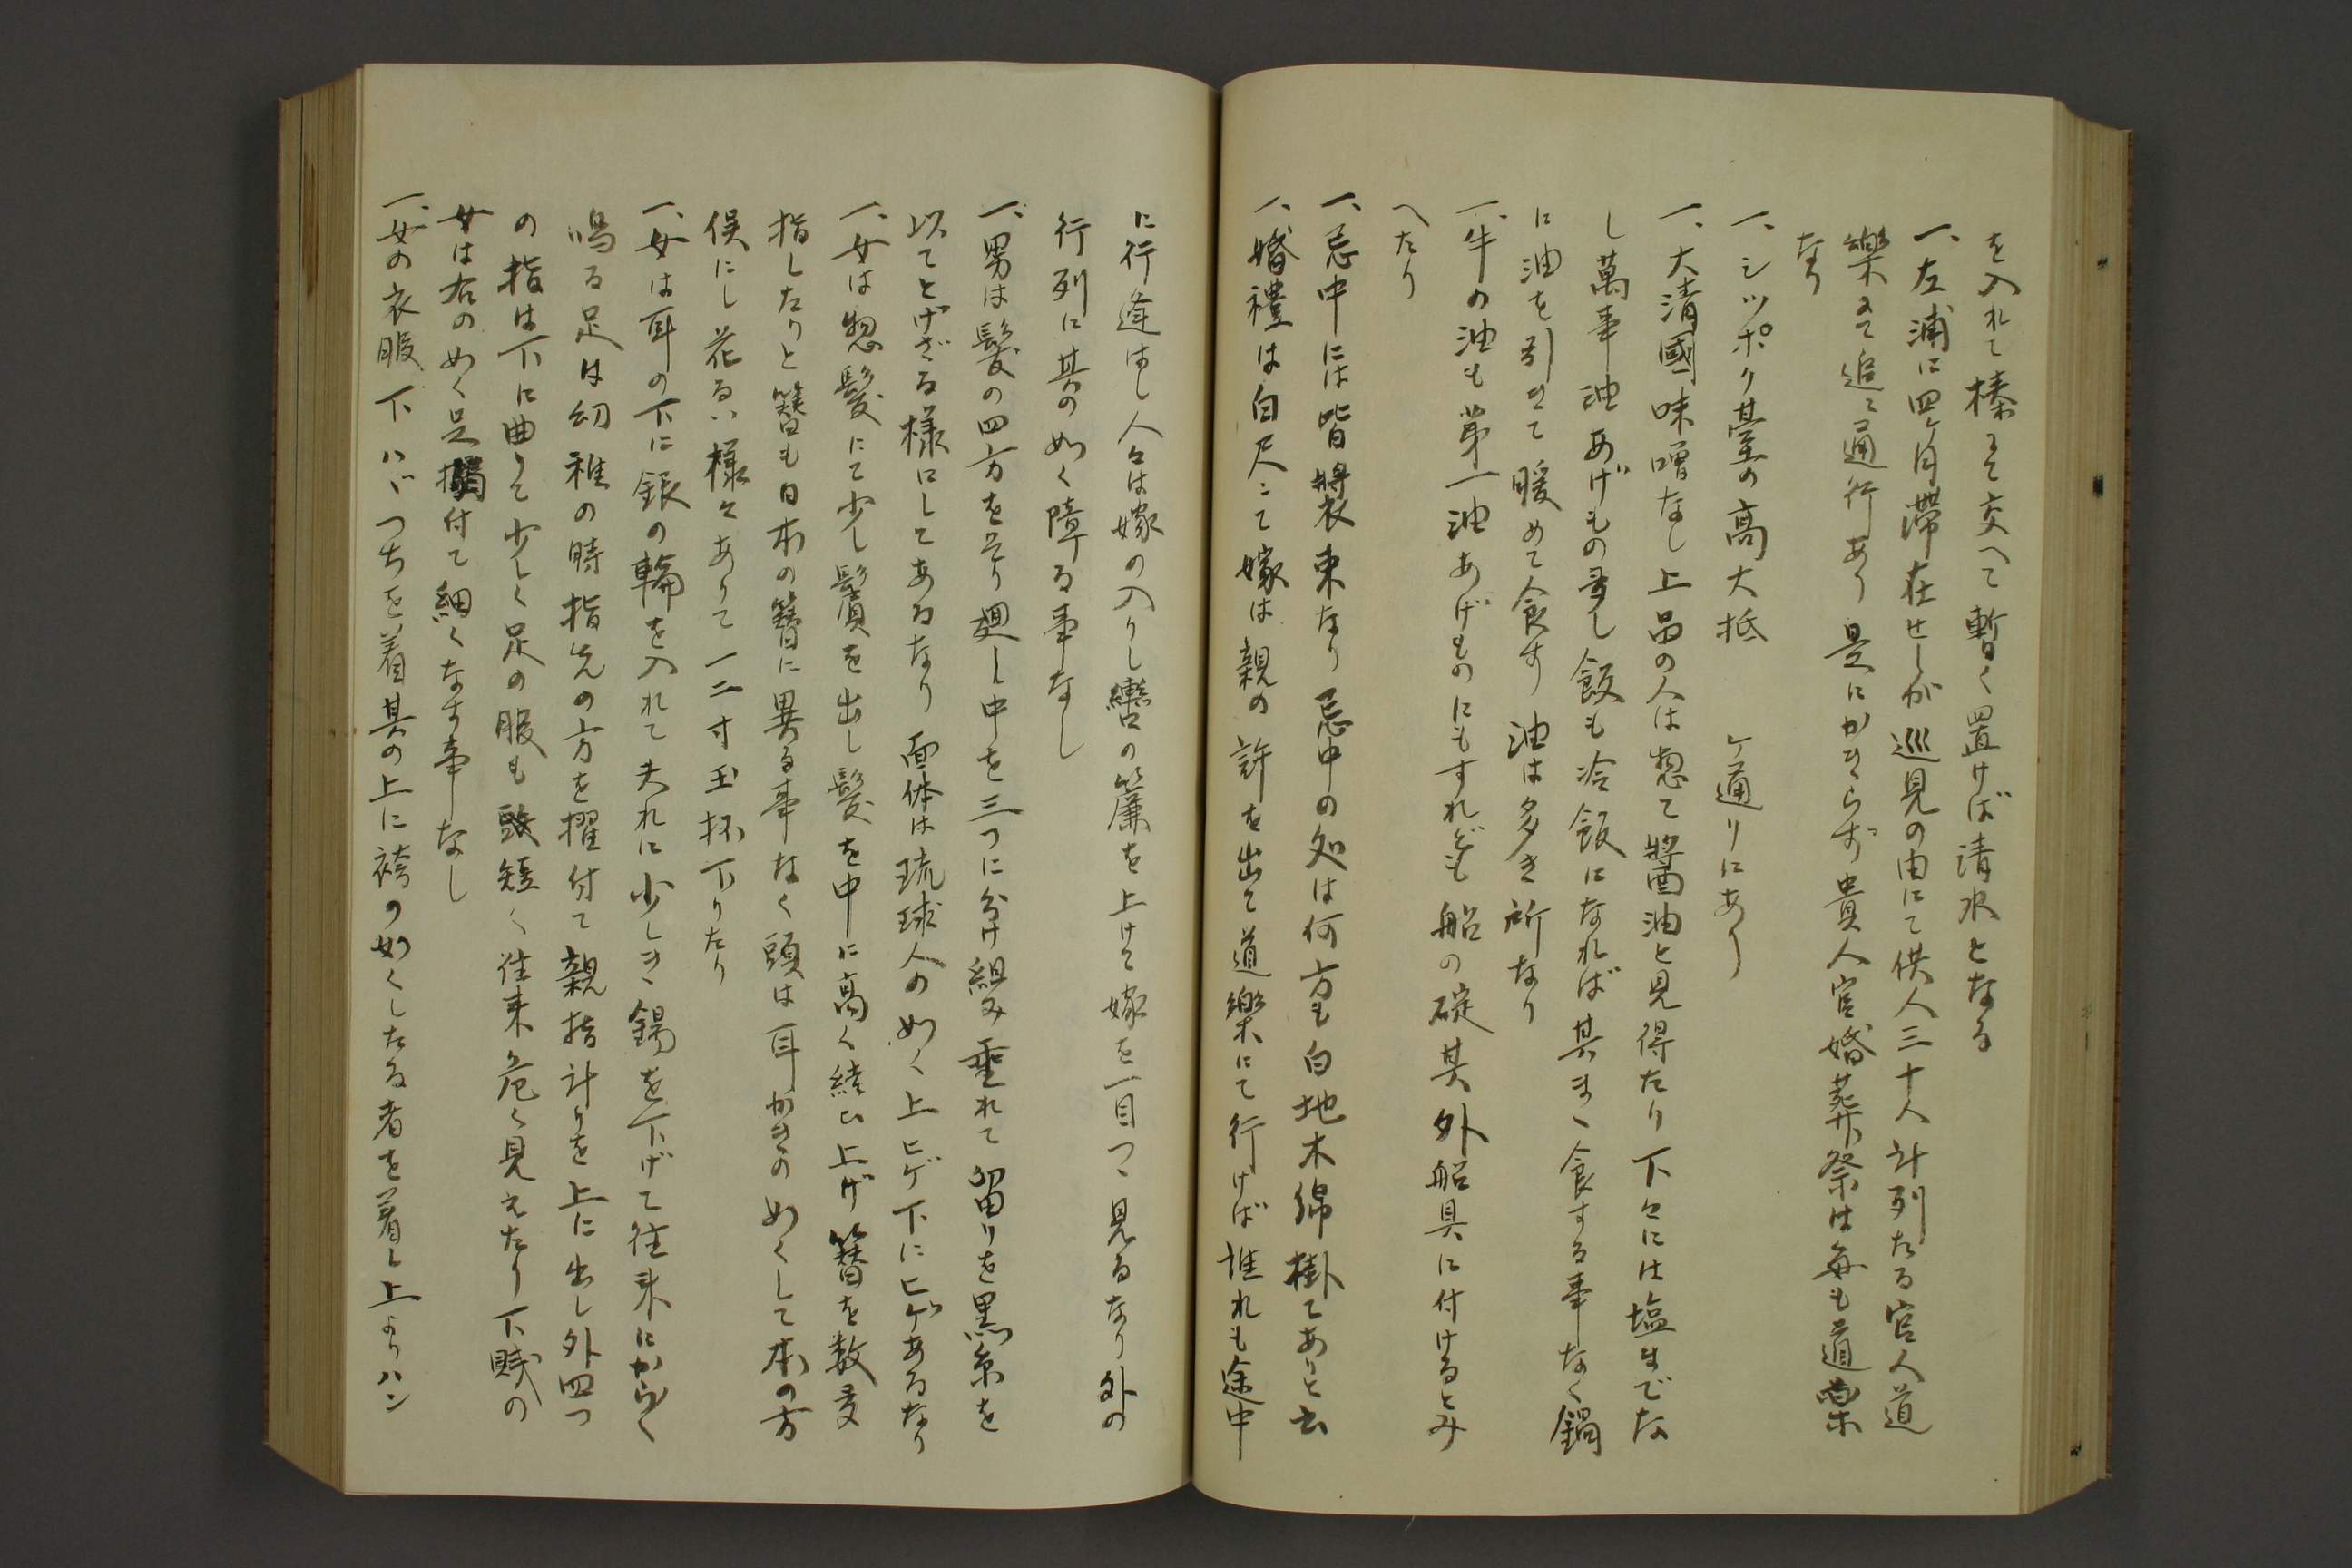 を入れて棒にて交へて暫く置けば清水となる
一、左浦に四ヶ月滞在せしが巡見の由にて供人三十人計列たる官人道
樂にて追々通行あり是にかきらず貴人官婚葬祭は毎も道樂
なり
一、シツポク臺の高大抵　　ケ通りにあり
一、大清國味噌なし上品の人は惣て醬油と見得たり下々には塩までな
し萬事油あげもの多し飯も冷飯になれば其まゝ食する事なく鍋
に油を引きて暖めて食す油は多き所なり
一、牛の油も第一油あげものにもすれども船の碇其外船具に付けるとみ
へたり
一、忌中には皆裝束なり忌中の処は何方も白地木綿掛てありと云
一、婚禮は白尺にて嫁は親の許を出て道樂にて行けば誰れも途中
に行逢はし人々は嫁の入りし轡の簾を上けて嫁を一目つゝ見るなり外の
行列に其の如く障る事なし
一、男は髪の四方をそり廻し中を三つに分け組み垂れて留りを黒糸を
以てとげざる様にしてあるなり面体は琉球人の如く上ヒゲ下にヒゲあるなり
一、女は惣髪にて少し鬢を出し髪を中に高く結ひ上げ簪を数多
指したりと簪も日本の簪に異る事なく頭は耳かきの如くして本の方
俣にし花るい様々ありて一二寸玉抔下りたり
一、女は耳の下に銀の輪を入れて夫れに少しき錫を下げて往来にからく
鳴る足は幼稚の時指先の方を摺付て親指計りを上に出し外四つ
の指は下に曲りて少しく足の服も短く往来危く見えたり下賎の
女は右の如く足摺付て細くなす事なし
一、女の衣服下ハバつちを着其の上に袴の如くしたる者を着し上よりハン